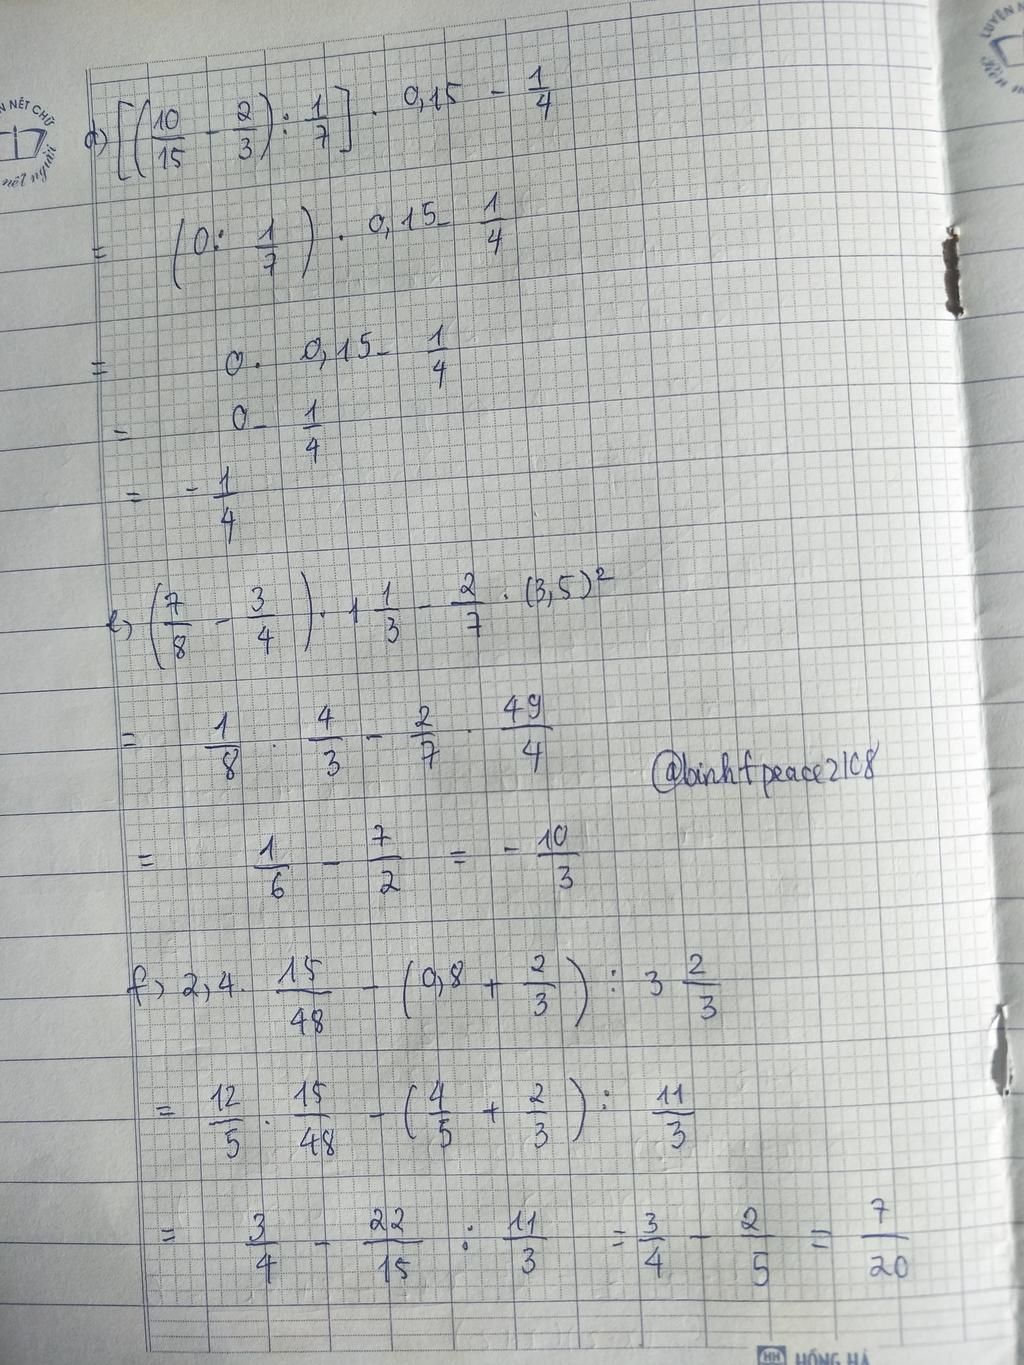 N NÉT CHỮ
nết người
LUYỆN N
Rèn n
d) [(10/15 - 2/3) : 1/7] . 0,15 - 1/4
= (0 : 1/7) . 0,15 - 1/4
= 0 . 0,15 - 1/4
= 0 - 1/4
= - 1/4
e) (7/8 - 3/4) . 1 1/3 - 2/7 . (3,5)²
= 1/8 . 4/3 - 2/7 . 49/4
@binhfpeace2108
= 1/6 - 7/2 = - 10/3
f) 2,4 . 15/48 - (0,8 + 2/3) : 3 2/3
= 12/5 . 15/48 - (4/5 + 2/3) : 11/3
= 3/4 - 22/15 : 11/3 = 3/4 - 2/5 = 7/20
HH HỒNG HÀ